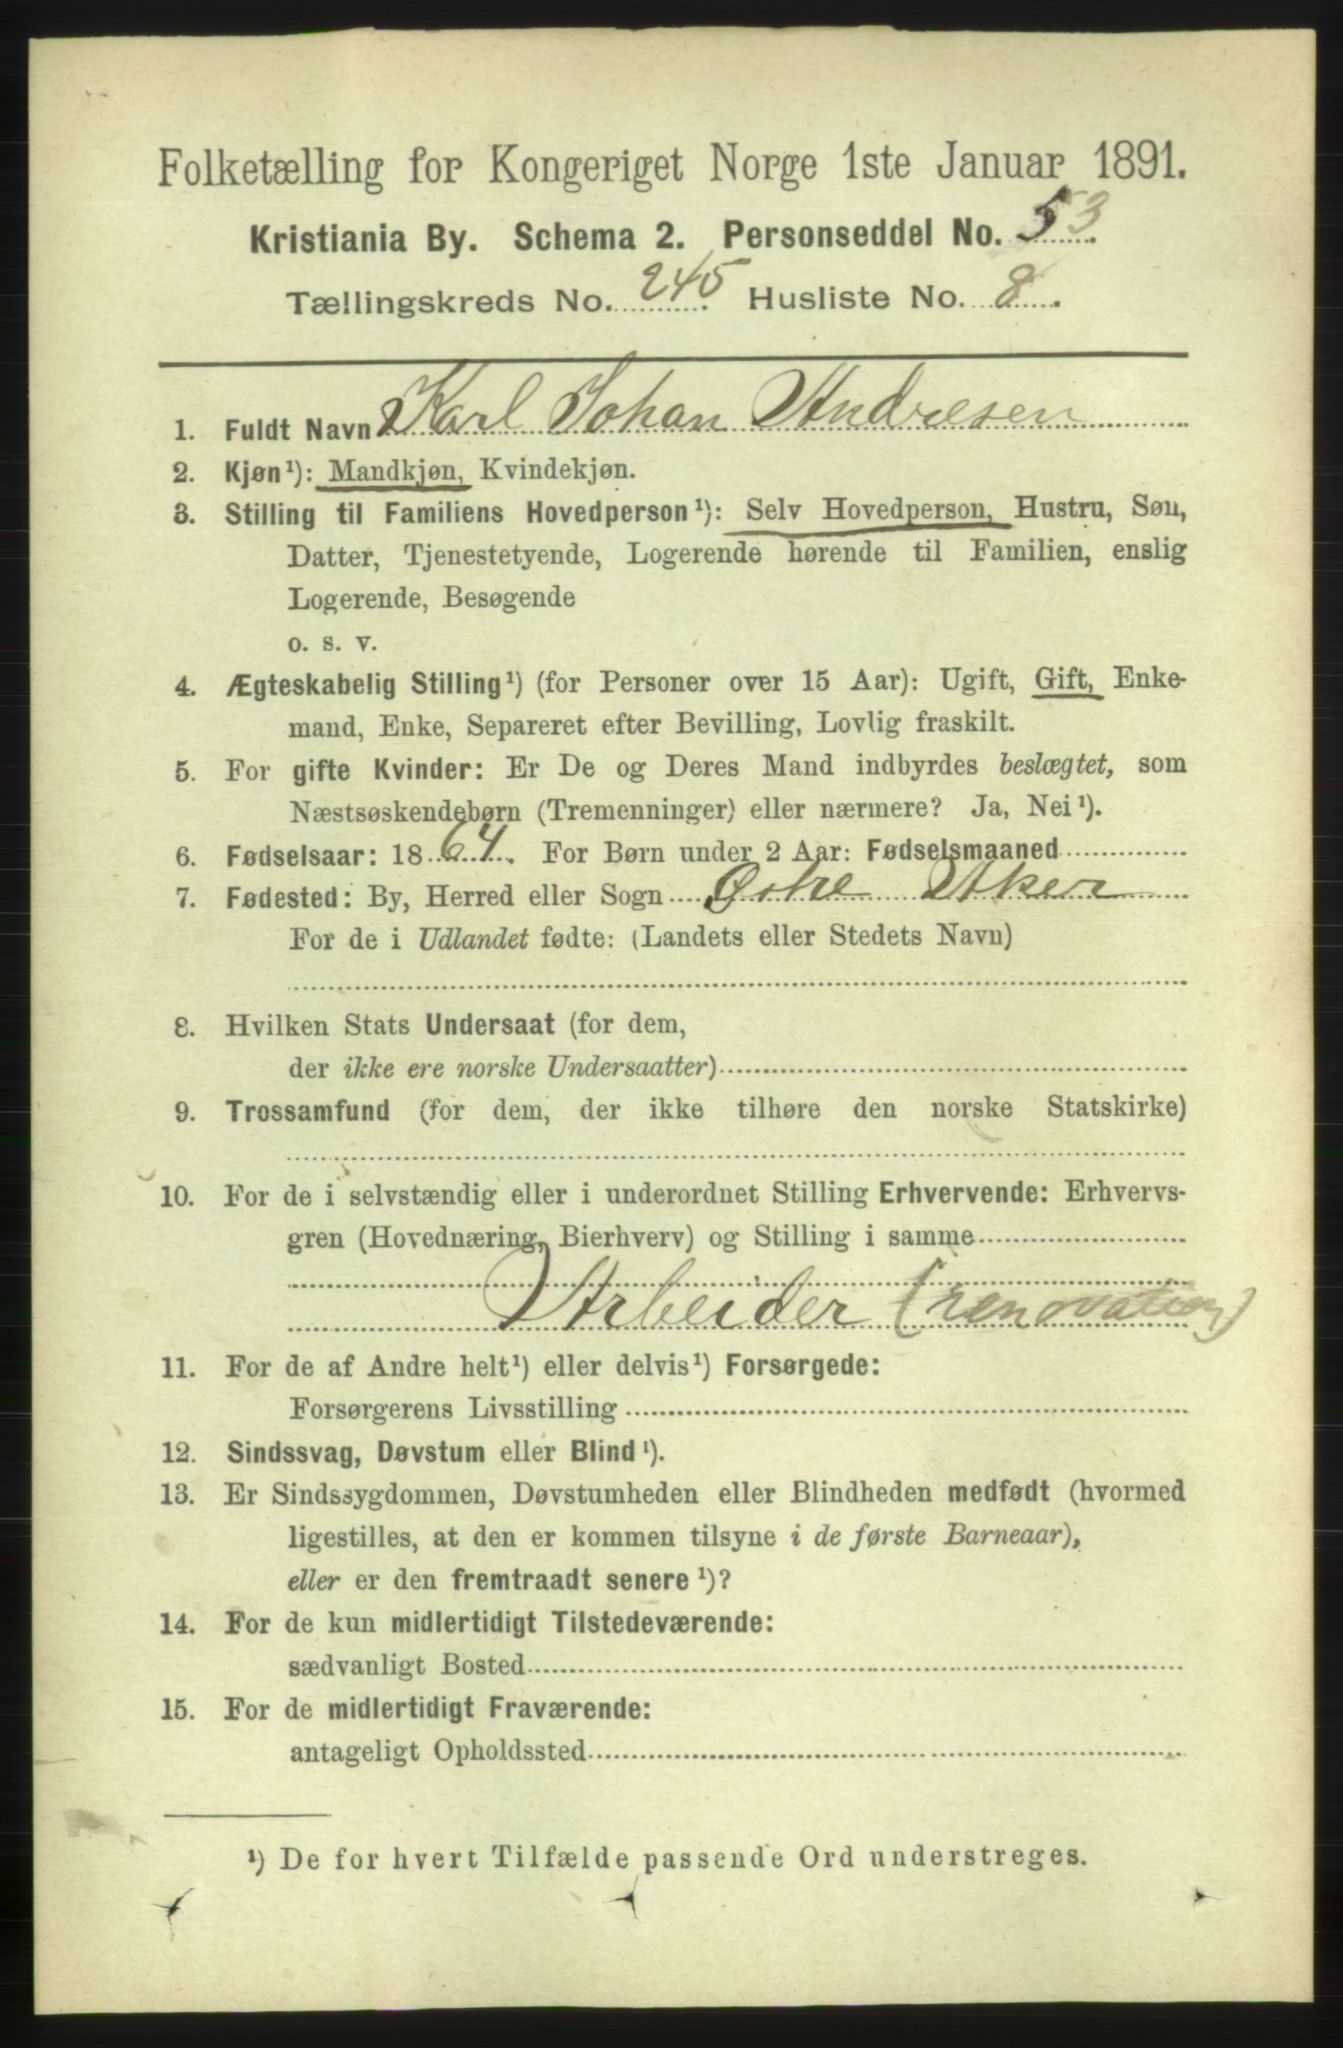 Folketælling for Kongeriget Norge 1ste Januar 1891.
Kristiania By. Schema 2. Personseddel No. 53.
Tællingskreds No. 245. Husliste No. 8.
1. Fuldt Navn Karl Johan Andresen
2. Kjøn¹): Mandkjøn, Kvindekjøn.
3. Stilling til Familiens Hovedperson¹): Selv Hovedperson, Hustru, Søn,
Datter, Tjenestetyende, Logerende hørende til Familien, enslig
Logerende, Besøgende
o. s. v.
4. Ægteskabelig Stilling¹) (for Personer over 15 Aar): Ugift, Gift, Enke-
mand, Enke, Separeret efter Bevilling, Lovlig fraskilt.
5. For gifte Kvinder: Er De og Deres Mand indbyrdes beslægtet, som
Næstsøskendebørn (Tremenninger) eller nærmere? Ja, Nei¹).
6. Fødselsaar: 1864. For Børn under 2 Aar: Fødselsmaaned
7. Fødested: By, Herred eller Sogn Østre Aker
For de i Udlandet fødte: (Landets eller Stedets Navn)
8. Hvilken Stats Undersaat (for dem,
der ikke ere norske Undersaatter)
9. Trossamfund (for dem, der ikke tilhøre den norske Statskirke)
10. For de i selvstændig eller i underordnet Stilling Erhvervende: Erhvervs-
gren (Hovednæring, Bierhverv) og Stilling i samme
Arbeider (renovation)
11. For de af Andre helt¹) eller delvis¹) Forsørgede:
Forsørgerens Livsstilling
12. Sindssvag, Døvstum eller Blind¹).
13. Er Sindssygdommen, Døvstumheden eller Blindheden medfødt (hvormed
ligestilles, at den er kommen tilsyne i de første Barneaar),
eller er den fremtraadt senere¹)?
14. For de kun midlertidigt Tilstedeværende:
sædvanligt Bosted
15. For de midlertidigt Fraværende:
antageligt Opholdssted
¹) De for hvert Tilfælde passende Ord understreges.